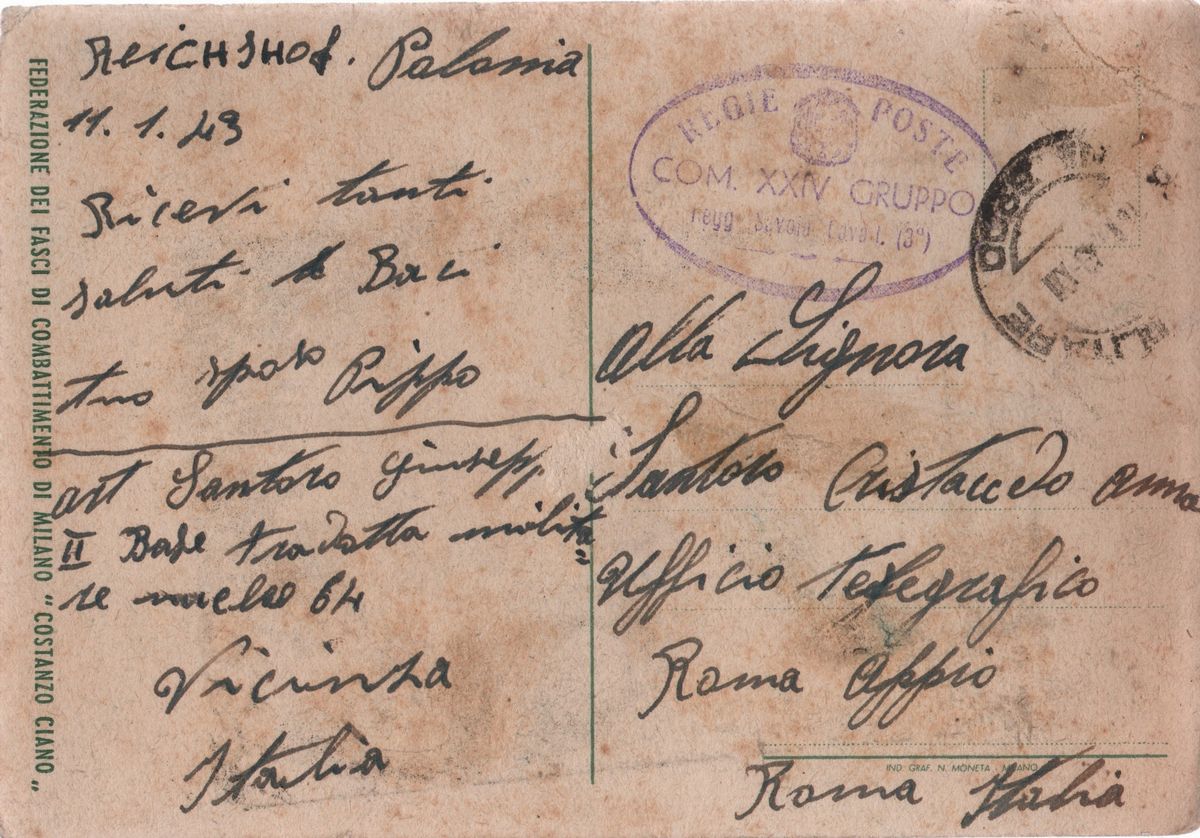 FEDERAZIONE DEI FASCI DI COMBATTIMENTO DI MILANO "COSTANZO CIANO"
REICHSHOf. Polonia
11.1.43
Ricevi tanti
saluti e Baci
tuo sposo Pippo
art Santoro Giusepp
II Base tradotta milita=
re nucleo 64
Vicinza
Italia
REGIE POSTE
COM. XXIV GRUPPO
regg. Savoia Caval. (3°)
Alla Signora
Santoro Cristaccedo Anna
Ufficio Telegrafico
Roma Appio
IND. GRAF. N. MONETA - MILANO
Roma Italia